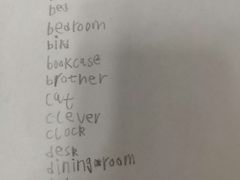 bed
bedroom
biki
bookcase
brother
cat
clever
clock
desk
diningroom